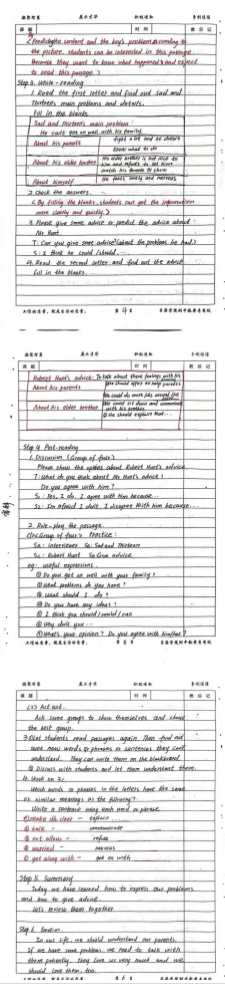 2. Predict the content and the boy's problem according to
the picture. Students can be interested in this passage.
Because they want to know what happened and expect
to read this passage.)
Step 3. While-reading
1. Read the first letter and find out Sad and
Thirteen's main problems and details.
Fill in the blanks.
Sad and Thirteen's main problem:
He can't get on well with his family.
About his parents
fight a lot and he doesn't
know what to do
About his elder brother
His elder brother is not nice to
him and refuses to let him
watch his favorite TV show
About himself
He feels lonely and nervous
2. Check the answers.
< By filling the blanks, students can get the information
more clearly and quickly.>
3. Please give some advice or predict the advice about
Mr Hunt.
T: Can you give some advice (about the problems he had)
S: I think he could/should...
4. Read the second letter and find out the advice
Fill in the blanks.
Robert Hunt's advice: To talk about these feelings with his
About his parents
He should offer to help parents
He could do more jobs around the
About his elder brother
He could sit down and communicate
with his brother
He should explain that...
Step 4 Post-reading
1. Discussion (Group of four)
Please share the opinions about Robert Hunt's advice.
T: What do you think about Mr Hunt's advice?
Do you agree with him?
S1: Yes, I do. I agree with him because...
S2: I'm afraid I don't. I disagree with him because...
2. Role-play the passage.
(1)<Group of four> Practice:
Sa: Interviewer Sb: Sad and Thirteen
Sc: Robert Hunt
eg: useful expressions
① Do you get on well with your family?
② What problems do you have?
③ What should I do?
④ Do you have any ideas?
⑤ I think you should/would/can
⑥ Why don't you...
⑦ What's your opinion? Do you agree with him/her?
(2) Act out.
Ask some groups to show themselves and choose
the best group.
3. ① Let students read passages again. Then find out
some new words or phrases or sentences they can't
understand. They can write them on the blackboard.
② Discuss with students and let them understand them.
4. Work on 3c
Which words or phrases in the letters have the same
or similar meanings as the following?
Write a sentence using each word or phrase.
① make sth clear — explain
② talk — communicate
③ not allow — refuse
④ worried — nervous
⑤ get along with — get on with
Step 5. Summary
Today we have learned how to express our problems
and how to give advice.
Let's review them together
Step 6. Emotion
In our life, we should understand our parents.
If we have some problems, we need to talk with
them patiently. They love us very much and we
should love them, too.